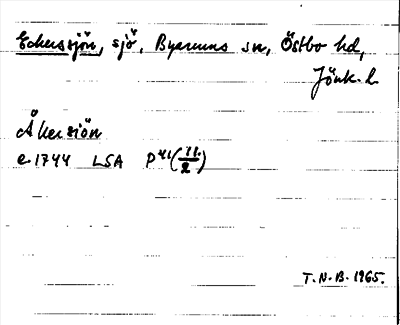 Eckerssjön, sjö, Byarums sn, Östbo hd,
Jönk. l.
Åkersiön
e 1744 LSA P 41 (11/2)
T. N. B. 1965.